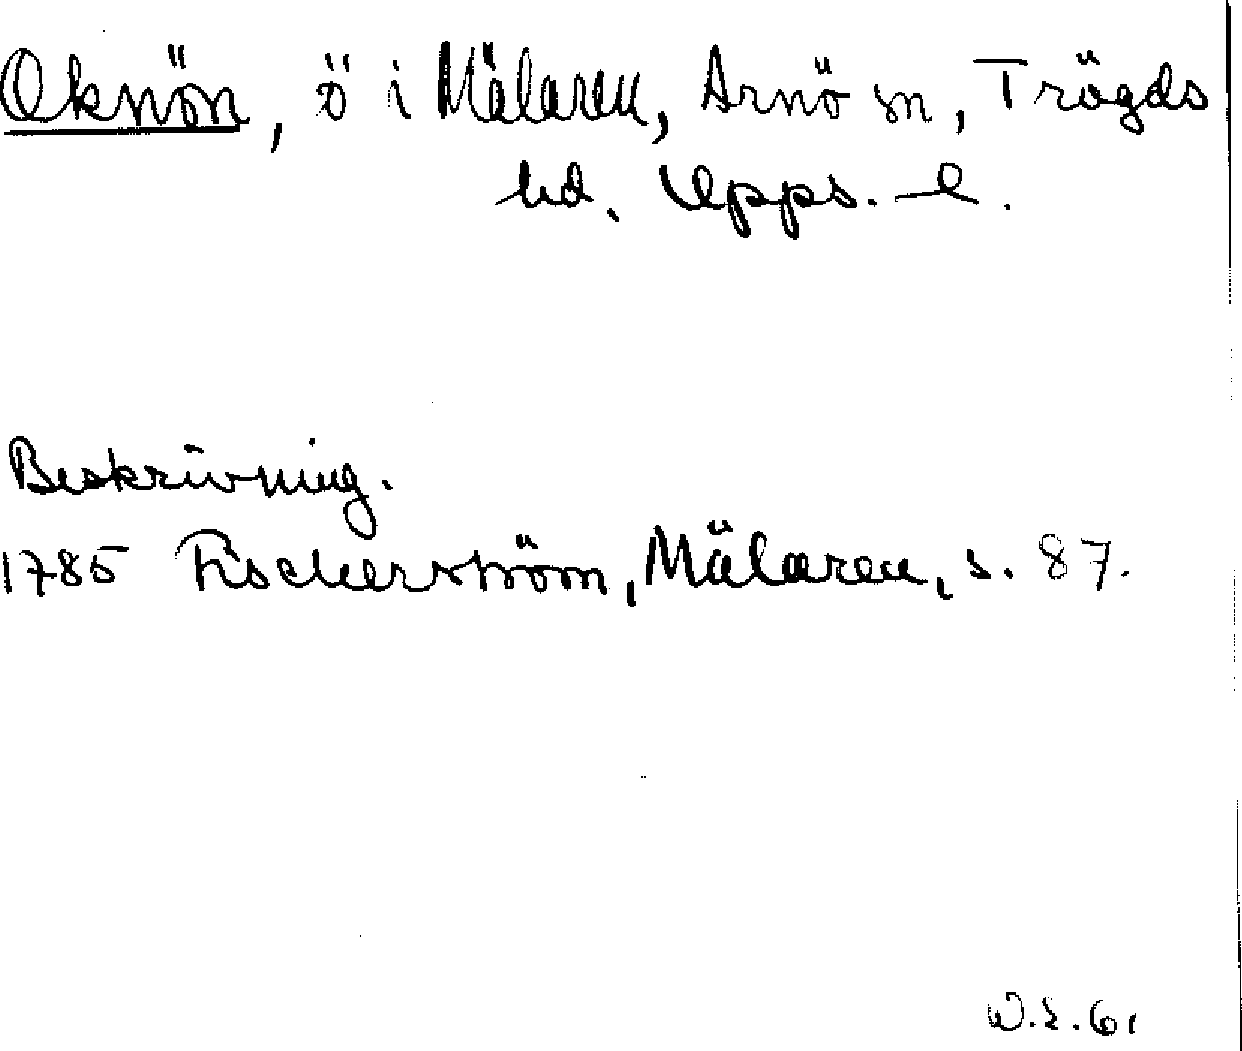 Oknön, ö i Mälaren, Arnö sn, Trögds
hd. Upps. l.
Beskrivning.
1785 Fischerström, Mälaren, s. 87.